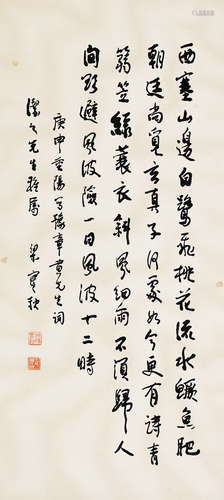 西塞山邊白鷺飛桃花流水鱖魚肥
朝廷尚覓玄真子何處如今更有詩青
篛笠綠蓑衣斜風細雨不須歸人
間欲避風波險一日風波十二時
庚申重陽寫豫章黃先生詞
先生雅屬 梁實秋